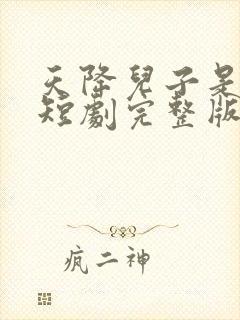 天降兒子是
短劇完整版
疯二神